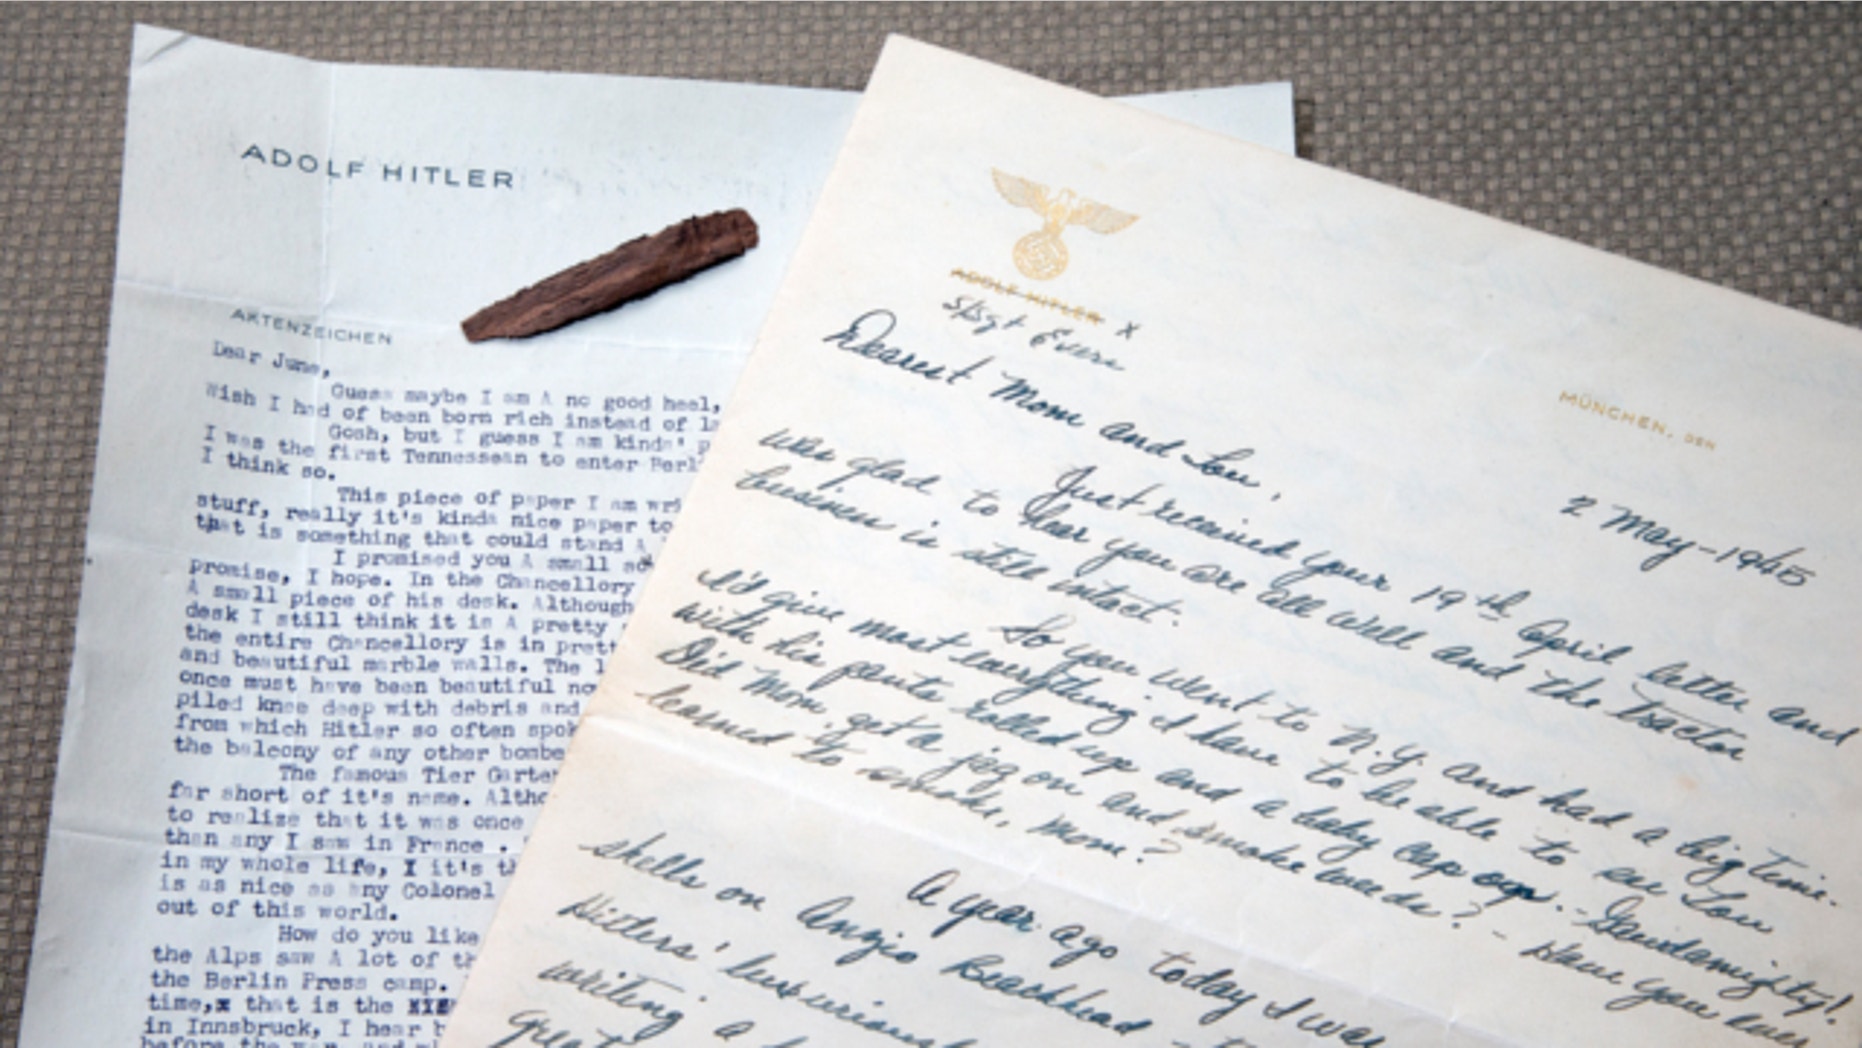 ADOLF HITLER
AKTENZEICHEN
Dear June,
Guess maybe I am A no good heel,
Wish I had of been born rich instead of
Gosh, but I guess I am kinda'
I was the first Tennessean to enter
I think so.
This piece of paper I am
stuff, really it's kinda nice paper to
that is something that could stand A
I promised you A small
promise, I hope. In the Chancellory
A small piece of his desk. Although
desk I still think it is A pretty
the entire Chancellory is in
and beautiful marble walls. The
once must have been beautiful
piled knee deep with debris and
from which Hitler so often
the balcony of any other
The famous Tier
far short of it's name.
to realize that it was once
than any I saw in France .
in my whole life, I it's
is as nice as any Colonel
out of this world.
How do you like
the Alps saw A lot of
the Berlin Press camp.
time,x that is the
in Innsbruck, I hear
before the war, and
ADOLF HITLER X
S/Sgt Evers
MÜNCHEN, DEN
2 May-1945
Dearest Mom and Lou,
Just received your 19th April letter and
was glad to hear you are all well and the tractor
business is still intact.
So you went to N.Y. and had a big time.
I'd give most everything I have to be able to see Lou
with his pants rolled up and a baby cap on. - Gaudamighty!
Did Mom get a jag on and smoke weeds? - Have you ever
learned to smoke, Mom?
A year ago today I was
shells on Anzio Beachhead -
Hitlers' luxurious
writing a
great